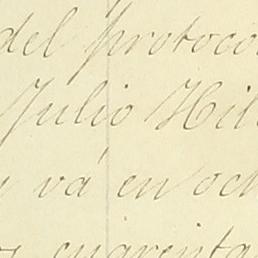 del protoco
Julio Hil
vá en och
cuarenta